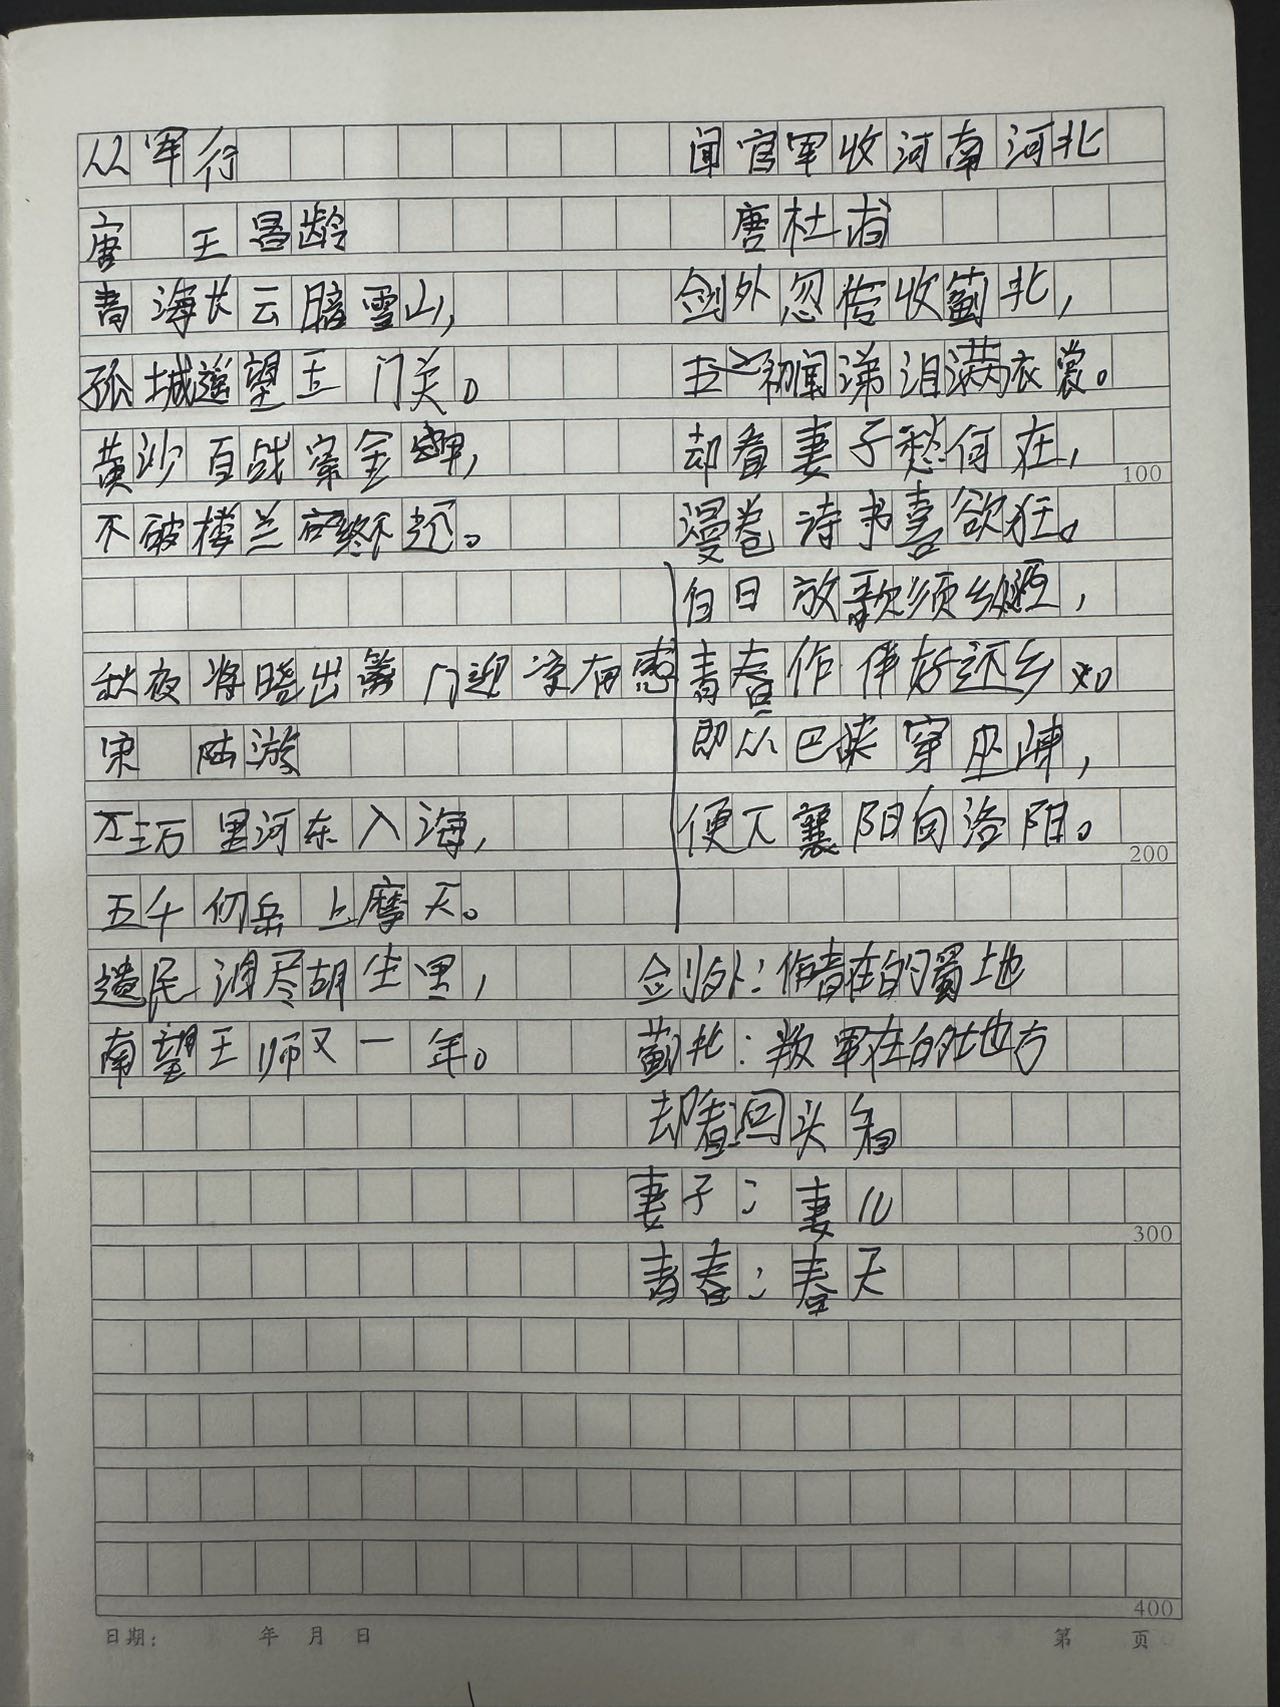 从军行
唐 王昌龄
青海长云暗雪山,
孤城遥望玉门关。
黄沙百战穿金甲,
不破楼兰终不还。
秋夜将晓出篱门迎凉有感
宋 陆游
万里河东入海,
五千仞岳上摩天。
遗民泪尽胡尘里,
南望王师又一年。
闻官军收河南河北
唐杜甫
剑外忽传收蓟北,
初闻涕泪满衣裳。
却看妻子愁何在,
漫卷诗书喜欲狂。
白日放歌须纵酒,
青春作伴好还乡。
即从巴峡穿巫峡,
便下襄阳向洛阳。
剑外:作者在的蜀地
蓟北:叛军在的地方
却看回头看
妻子:妻儿
青春:春天
100
200
300
400
日期: 年 月 日
第 页